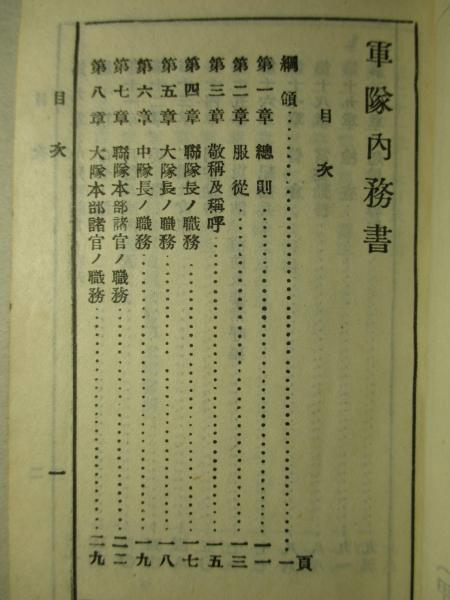 軍隊內務書
目次
頁
綱領……一
第一章 總則……一一
第二章 服從……一三
第三章 敬稱及稱呼……一五
第四章 聯隊長ノ職務……一七
第五章 大隊長ノ職務……一八
第六章 中隊長ノ職務……一九
第七章 聯隊本部諸官ノ職務……二二
第八章 大隊本部諸官ノ職務……二九
目次 一